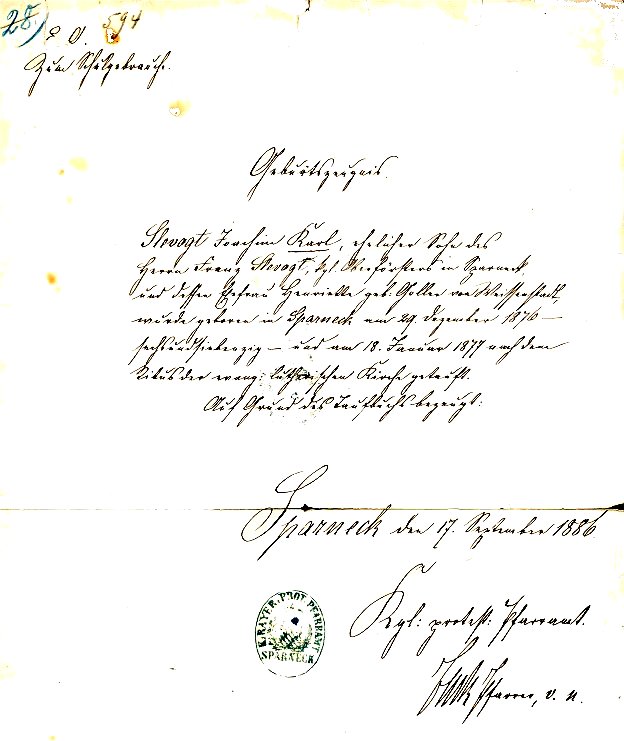 28.
594
Zum Schulgebrauche.
Geburtszeugnis.
Slevogt Joachim Karl, ehelicher Sohn des
Herrn Franz Slevogt, kgl. Oberförsters in Sparneck,
und dessen Ehefrau Henriette geb: Goller von Weissenstadt,
wurde geboren in Sparneck am 29. Dezember 1876 —
sechsundsiebenzig — und am 18. Januar 1877 nach dem
Ritus der evang: lutherischen Kirche getauft.
Auf Grund des Taufbuchs bezeugt:
Sparneck den 17. September 1886
Kgl: protest: Pfarramt.
Pfarrer, v. n.
K. BAYER. PROT. PFARRAMT
SPARNECK